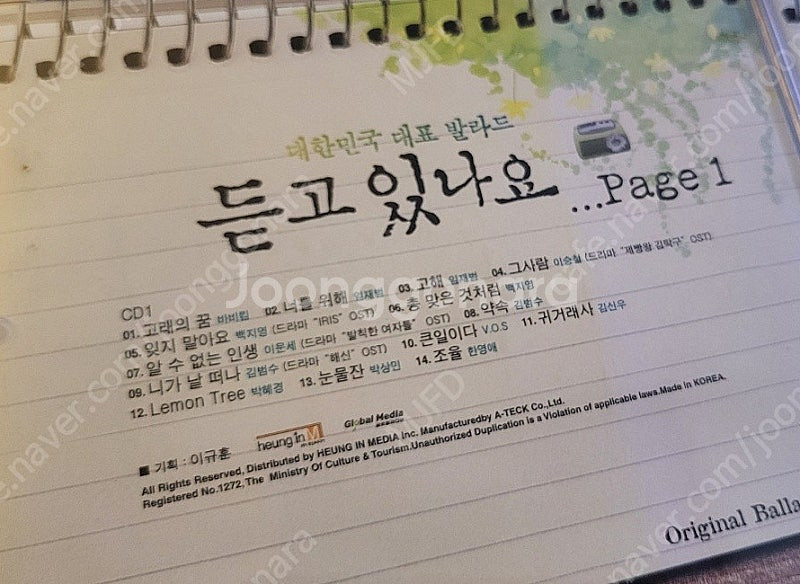 대한민국 대표 발라드
듣고 있나요 ...Page 1
CD1
01. 고래의 꿈 바비킴 02. 너를 위해 임재범 03. 고해 임재범 04. 그사람 이승철 (드라마 "제빵왕 김탁구" OST)
05. 잊지 말아요 백지영 (드라마 "IRIS" OST) 06. 총 맞은 것처럼 백지영
07. 알 수 없는 인생 이문세 (드라마 "발칙한 여자들" OST) 08. 약속 김범수
09. 니가 날 떠나 김범수 (드라마 "해신" OST) 10. 큰일이다 V.O.S 11. 귀거래사 김신우
12. Lemon Tree 박혜경 13. 눈물잔 박상민 14. 조율 한영애
■ 기획 : 이규훈 heung in M Global Media
All Rights Reserved, Distributed by HEUNG IN MEDIA Inc. Manufacturedby A-TECK Co.,Ltd.
Registered No.1272, The Ministry Of Culture & Tourism.Unauthorized Duplication is a Violation of applicable laws.Made in KOREA.
Original Balla
Joonggonara